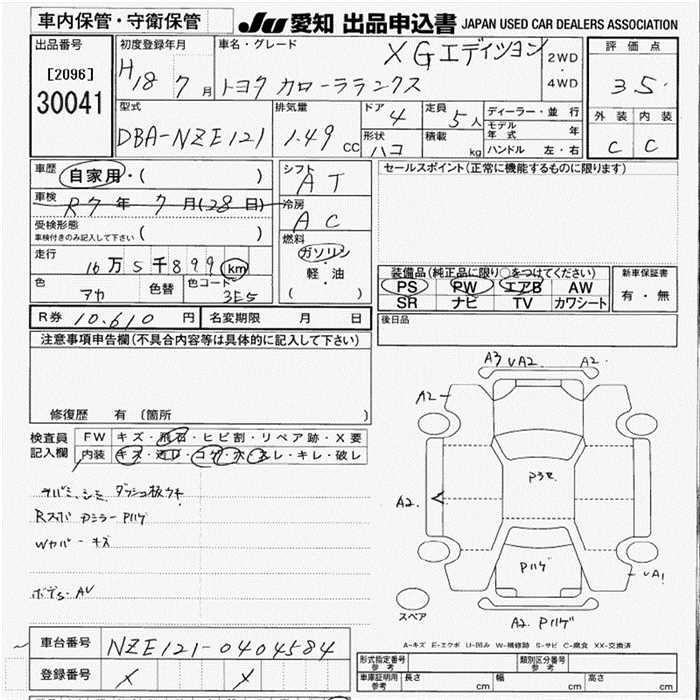 車内保管・守衛保管
JU 愛知 出品申込書 JAPAN USED CAR DEALERS ASSOCIATION
出品番号
[2096]
30041
初度登録年月
H18 7月
車名・グレード
XGエディション
トヨタ カローラランクス
2WD
・
4WD
評価点
35
外装 内装
C C
型式
DBA-NZE121
排気量
1.49 CC
ドア 4
形状 ハコ
定員 5人
積載 kg
ディーラー・並行
モデル年式 年
ハンドル 左・右
車歴 自家用・( )
車検 R7年7月(28日)
受検形態
車検付きのみ記入して下さい ( )
走行
16万5千899km
色 アカ
色替
色コード 3E5
シフト AT
冷房 AC
燃料
ガソリン
・
軽・油
( )
セールスポイント(正常に機能するものに限ります)
装備品(純正品に限り○をつけてください)
PS PW エアB AW
SR ナビ TV カワシート
新車保証書
有・無
R券 10.610円
名変期限 月 日
後日品
注意事項申告欄(不具合内容等は具体的に記入して下さい)
修復歴 有 (箇所 )
検査員
記入欄
FW キズ・飛石・ヒビ割・リペア跡・X要
内装 キズ・汚レ・コゲ・穴・スレ・キレ・破レ
ダッシュ板ウキ
Rスポ Dミラー Pハゲ
Wカバーキズ
A3 VA2 A2
A2
A2
Pハゲ
VA1
A2 Pハゲ
スペア
A-キズ E-エクボ U-凹み W-補修跡 S-サビ C-腐食 XX-交換済
車台番号 NZE121-0404584
登録番号 X X
形式指定番号
参考
類別区分番号
参考
車庫証明用
参考
長さ cm
幅 cm
高さ cm